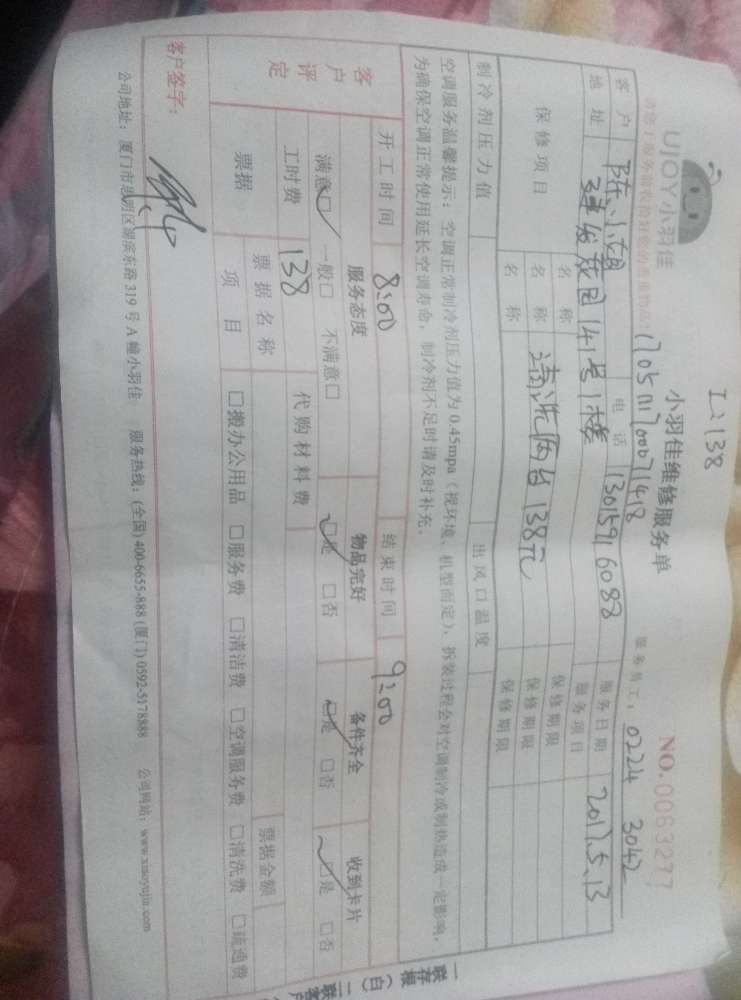 I:138
UJOY小羽佳
小羽佳维修服务单
NO.0063277
请您于服务前收拾好您的贵重物品!
170511700071418
服务员工: 0224 3042
客户 陈小姐 电话 13015916088 服务日期 2017.5.13
地址 建发花园141号1楼 服务项目
保修项目 名称 保修期限
名称 清洗两台138元 保修期限
名称 保修期限
制冷剂压力值 出风口温度
空调服务温馨提示:空调正常制冷剂压力值为0.45mpa(视环境、机型而定),拆装过程会对空调制冷或制热造成一定影响,
为确保空调正常使用延长空调寿命,制冷剂不足时请及时补充。
开工时间 8:00 结束时间 9:00
客户评定 服务态度 物品完好 备件齐全 收到卡片
满意☑ 一般□ 不满意□ ☑是 □否 ☑是 □否 ☑是 □否
工时费 138 代购材料费
票据 票据名称 票据金额
项目 □搬办公用品 □服务费 □清洁费 □空调服务费 □清洗费 □疏通费
客户签字:
公司地址:厦门市思明区湖滨东路319号A幢小羽佳 服务热线:(全国)400-6655-888(厦门)0592-5178888 公司网站:www.xiaoyujia.com
一联存根(白)二联客户